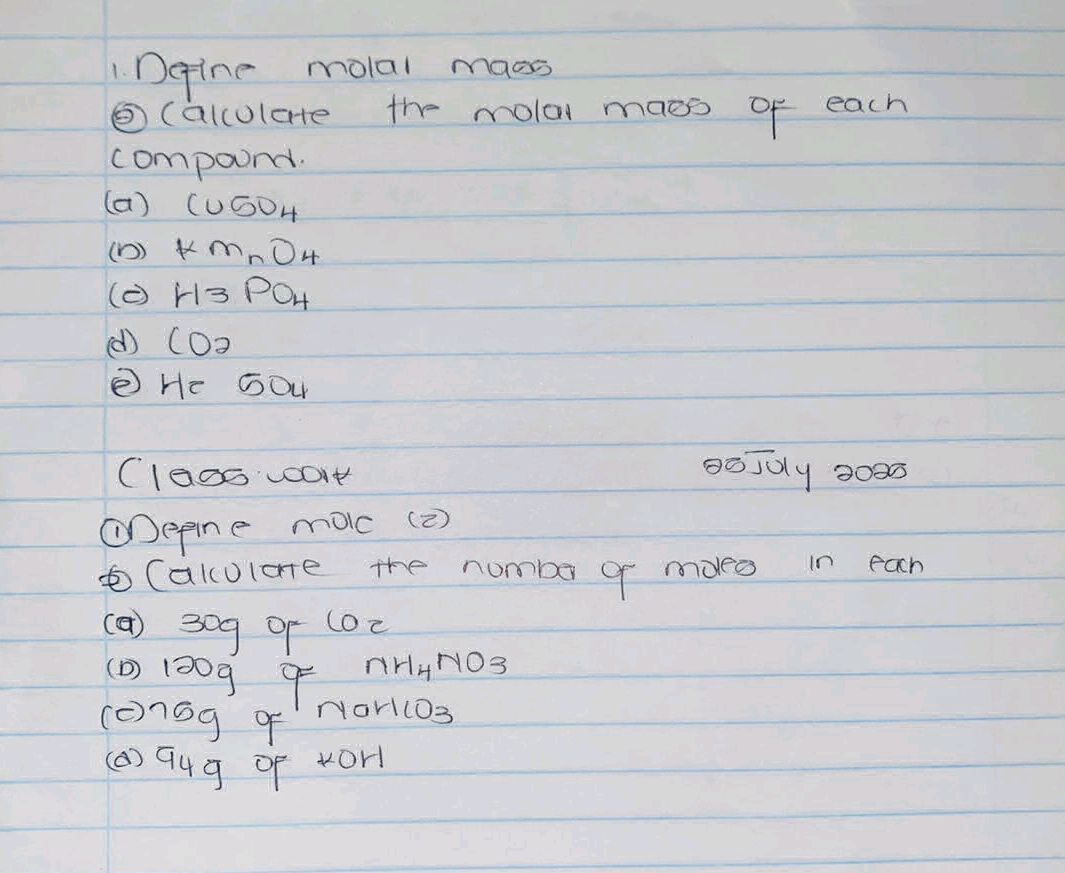 1. Define molar mass
② Calculate the molar mass of each
compound.
(a) CuSO4
(b) KMnO4
(c) H3 PO4
(d) CO2
(e) H2 SO4
Class work 25 July 2025
① Define mole (2)
② Calculate the number of moles in each
(a) 30g of CO2
(b) 120g of NH4NO3
(c) 75g of NaHCO3
(d) 94g of KOH